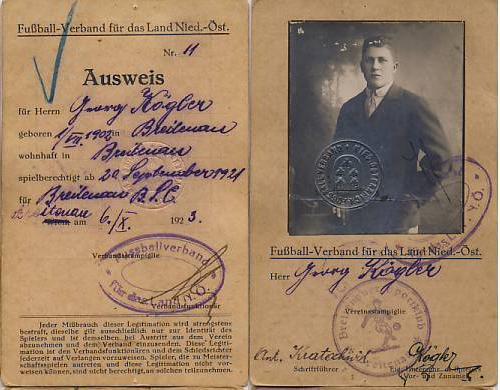 Fußball-Verband für das Land Nied.-Öst.
Nr. 11
Ausweis
für Herrn Georg Kögler
geboren 1/VII. 1902 in Breitenau
wohnhaft in Breitenau
spielberechtigt ab 20 September 1921
für Breitenau B.S.C.
Breitenau am 6./X. 1923.
Verbandsstampiglie
Fussballverband
für das Land N.Ö.
Verbandsfunktionär
Jeder Mißbrauch dieser Legitimation wird strengstens
bestraft, dieselbe gilt ausschließlich nur zur Identität des
Spielers und ist demselben, bei Austritt aus dem Verein
abzunehmen und dem Verband einzusenden. Diese Legiti-
mation ist den Verbandsfunktionären und dem Schiedsrichter
jederzeit auf Verlangen vorzuweisen. Spieler, die zu Meister-
schaftsspielen antreten, und diese Legitimation nicht vor-
weisen können, sind nicht berechtigt, an solchen teilzunehmen.
Fußball-Verband für das Land Nied.-Öst.
Herr Georg Kögler
Vereinsstampiglie
Kögler
Schriftführer
Vor- und Zuname